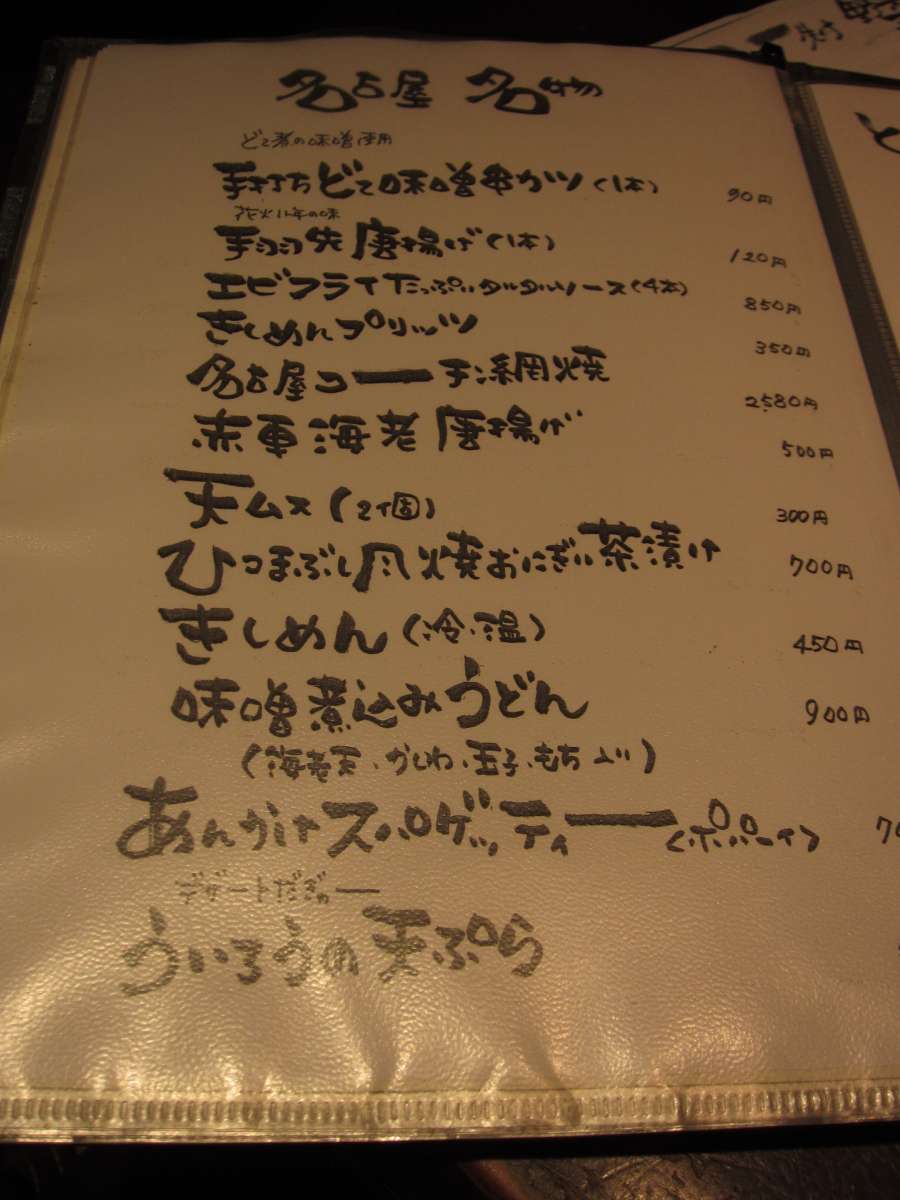 名古屋 名物
どて煮の味噌使用
手打ちどて味噌串カツ(1本) 90円
手羽先唐揚げ(1本) 120円
エビフライたっぷりタルタルソース(4本) 850円
きしめんプリッツ 350円
名古屋コーチン網焼 2,580円
赤車海老唐揚げ 500円
天ムス(2個) 300円
ひつまぶし風焼おにぎり茶漬け 700円
きしめん(冷・温) 450円
味噌煮込みうどん 900円
(海老天・かしわ・玉子・もち入り)
あんかけスパゲッティー<ポパーイ>
デザートだぎゃー
ういろうの天ぷら